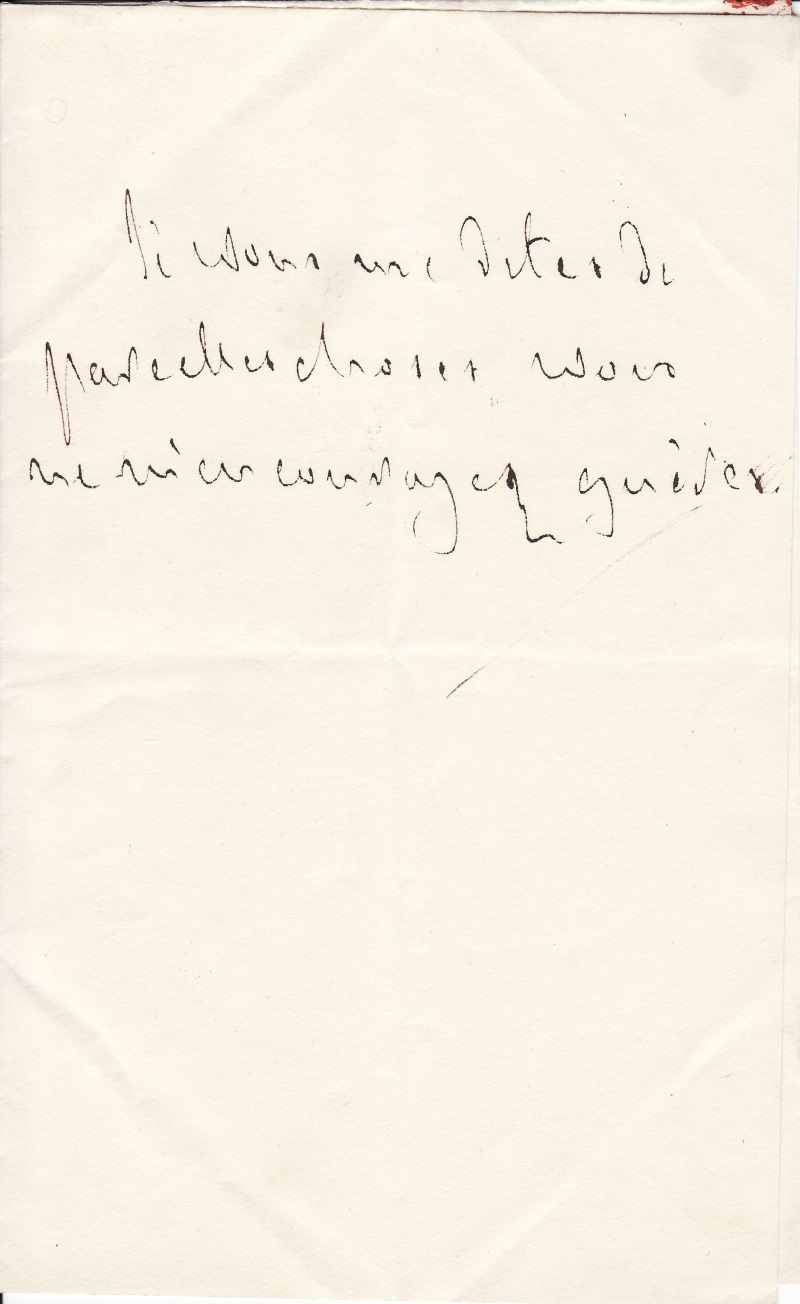 Si vous me dites de
pareilles choses vous
ne m'encouragez guères.